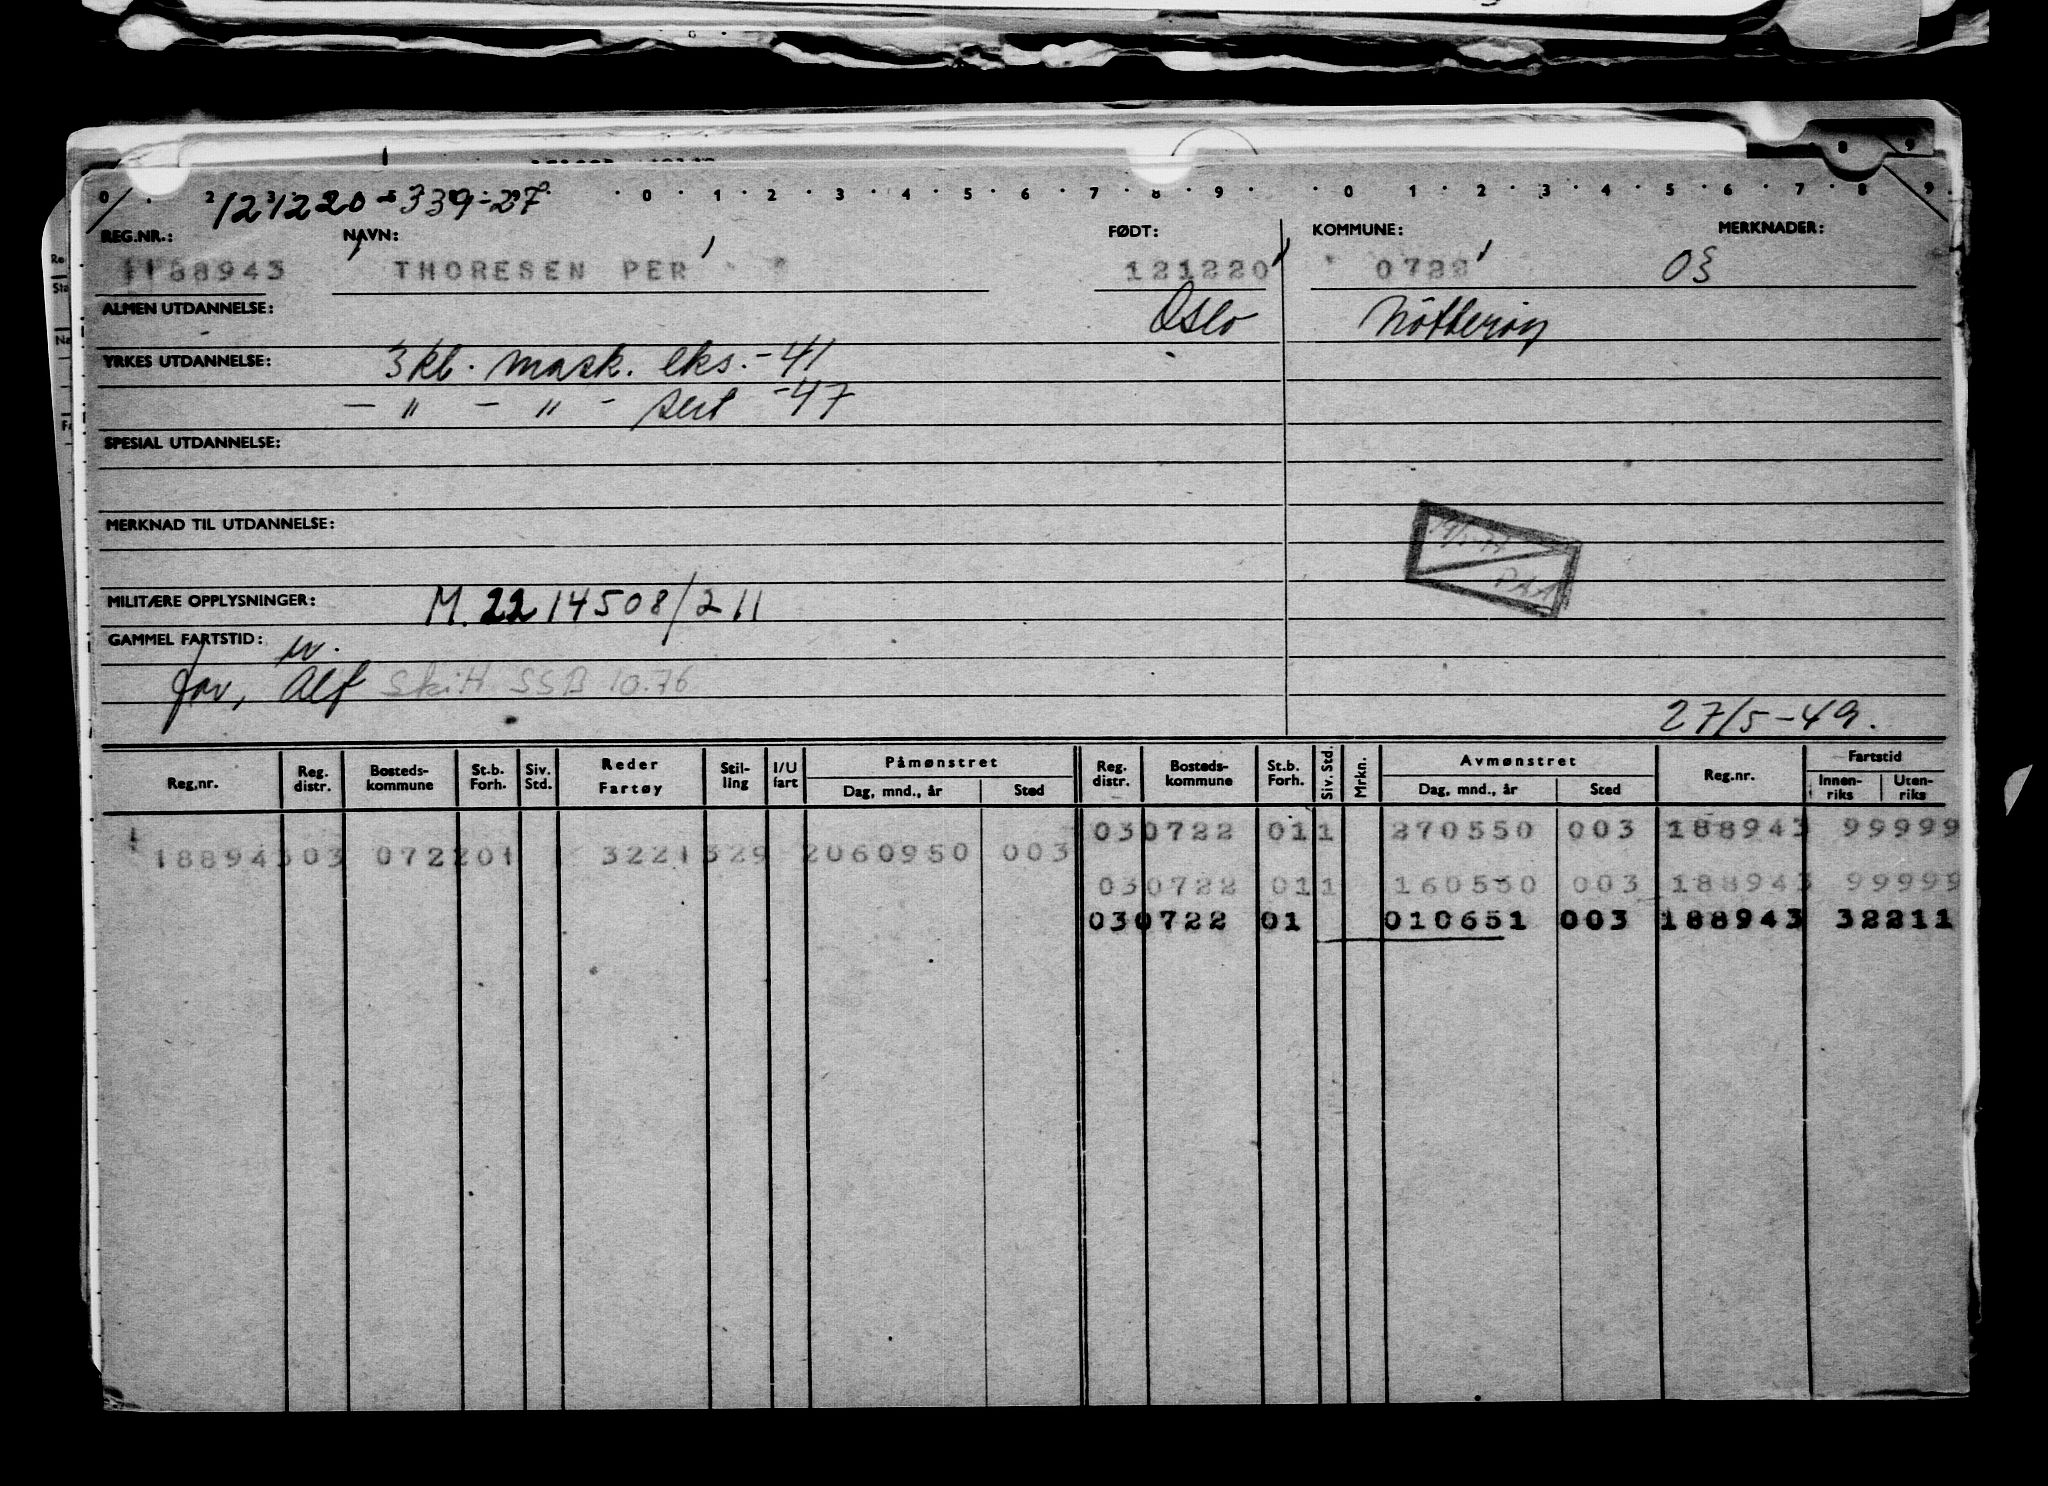 0 2 0 1 2 3 4 5 6 7 8 9 0 1 2 3 4 5 6 7 8 9
121220-339-27
REG.NR.: NAVN: FØDT: KOMMUNE: MERKNADER:
188943 THORESEN PER 121220 0722 0§
ALMEN UTDANNELSE: Oslo Nötteröy
YRKES UTDANNELSE: 3 kl. mask. eks. -41
— " — " - sert -47
SPESIAL UTDANNELSE:
MERKNAD TIL UTDANNELSE:
MILITÆRE OPPLYSNINGER: M. 2214508/211
GAMMEL FARTSTID:
far, Alf Skitt SSB 10.76
27/5-49.
Reg.nr. Reg. distr. Bosteds-kommune St.b. Forh. Siv. Std. Reder Fartøy Stil-ling I/U fart Påmønstret Dag, mnd., år Sted Reg. distr. Bosteds-kommune St.b. Forh. Siv. Std. Mrkn. Avmønstret Dag, mnd., år Sted Reg.nr. Fartstid Innen-riks Uten-riks
030722 011 270550 003 188943 99999
188943 03 072201 3221329 2060950 003
030722 011 160550 003 188943 99999
030722 01 010651 003 188943 32211